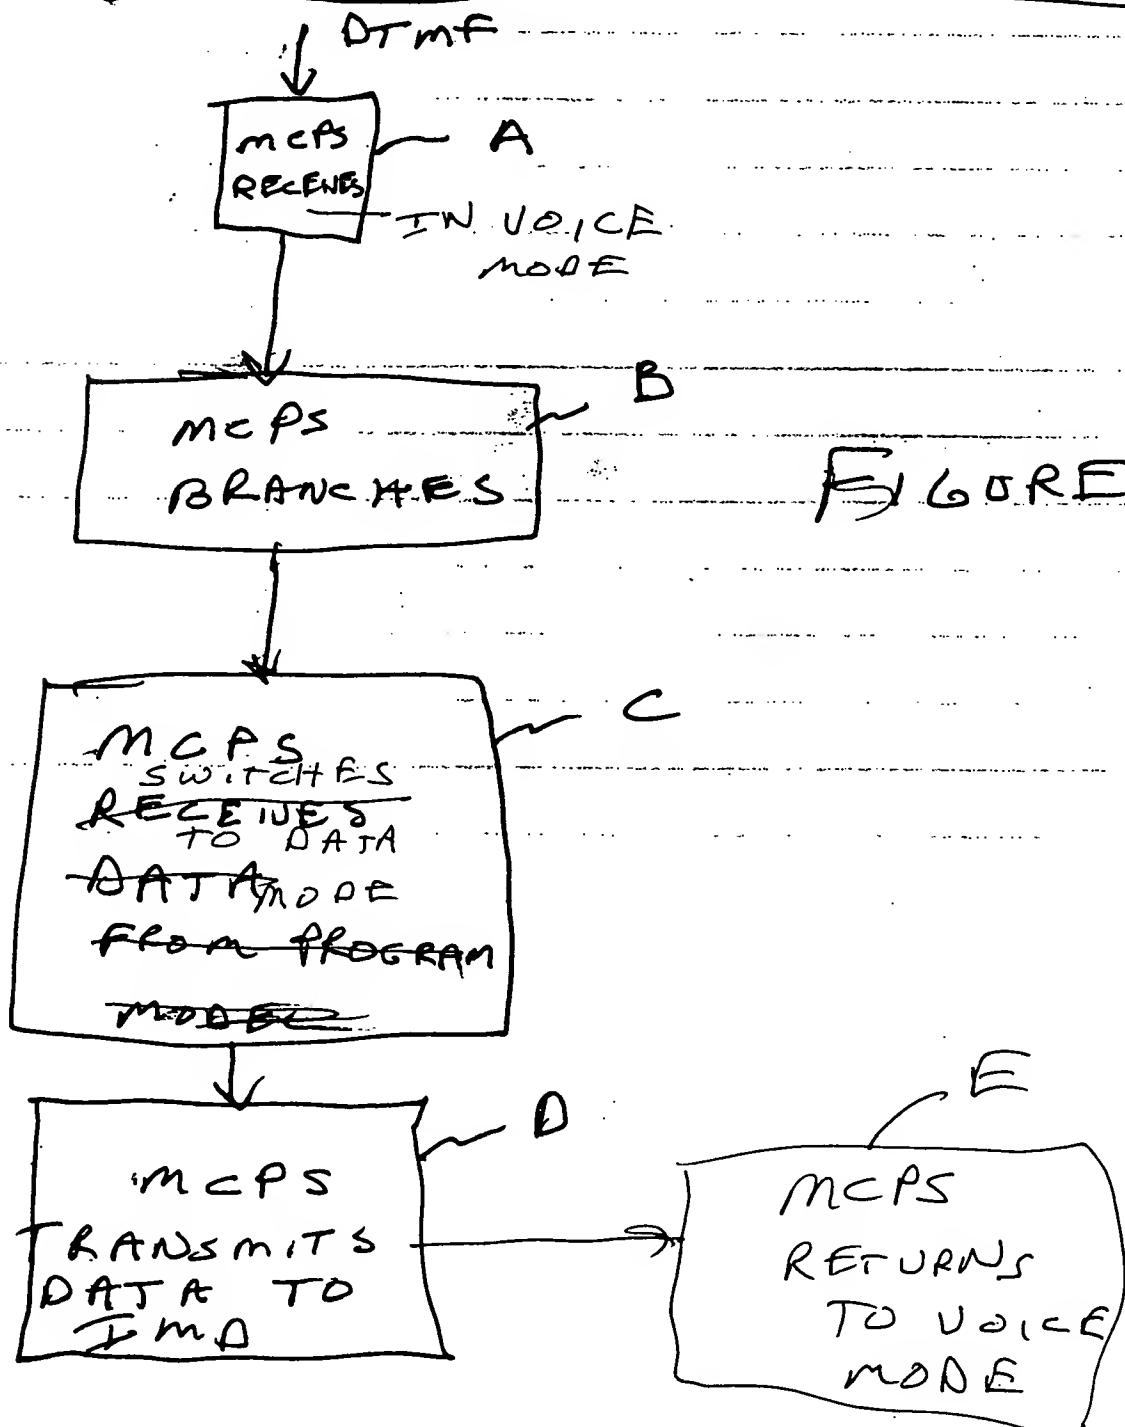 DTMF
MCPS
RECEIVES
A
IN VOICE
MODE
B
MCPS
BRANCHES
FIGURE
C
MCPS
SWITCHES
RECEIVES
TO DATA
DATA MODE
FROM PROGRAM
MODEL
D
MCPS
TRANSMITS
DATA TO
IMD
E
MCPS
RETURNS
TO VOICE
MODE